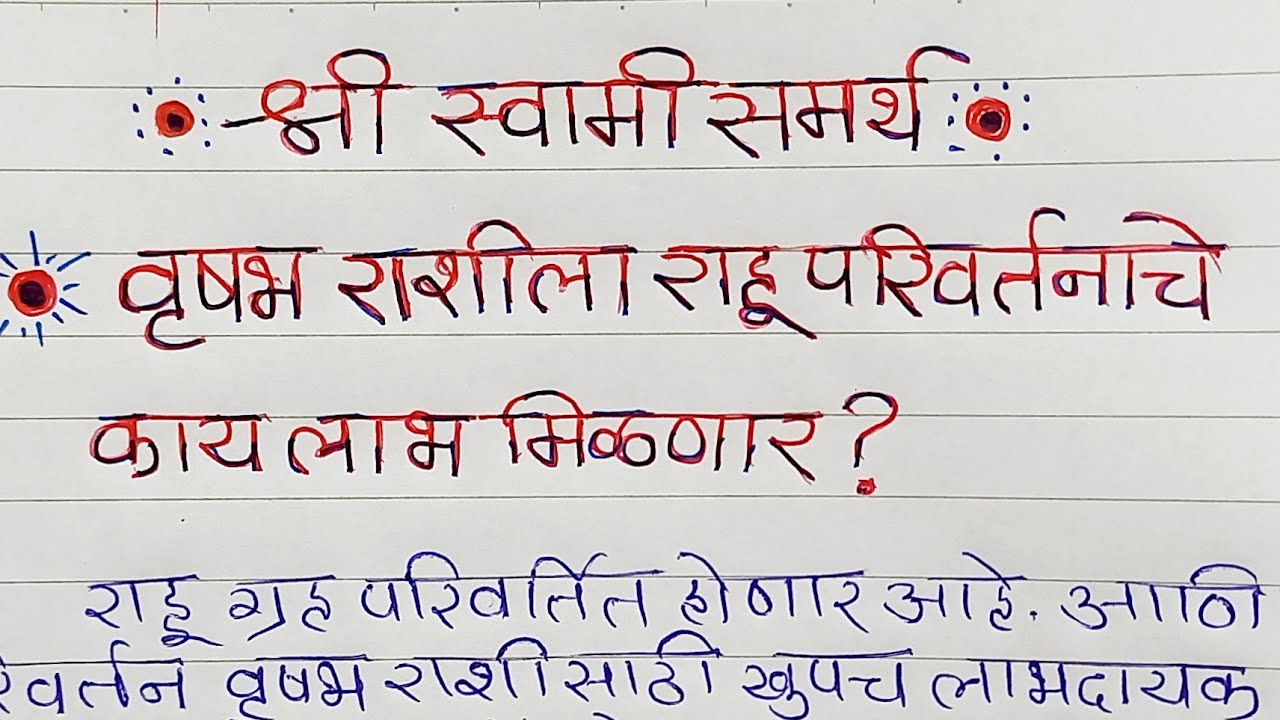 श्री स्वामी समर्थ
वृषभ राशीला राहू परिवर्तनाचे
काय लाभ मिळणार?
राहू ग्रह परिवर्तित होणार आहे. आणि
वृषभ राशीसाठी खुपच लाभदायक